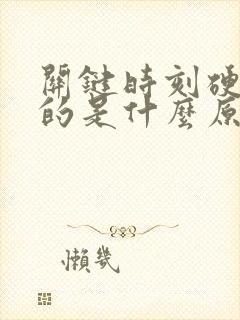 關鍵時刻硬
的是什麼原
懶幾